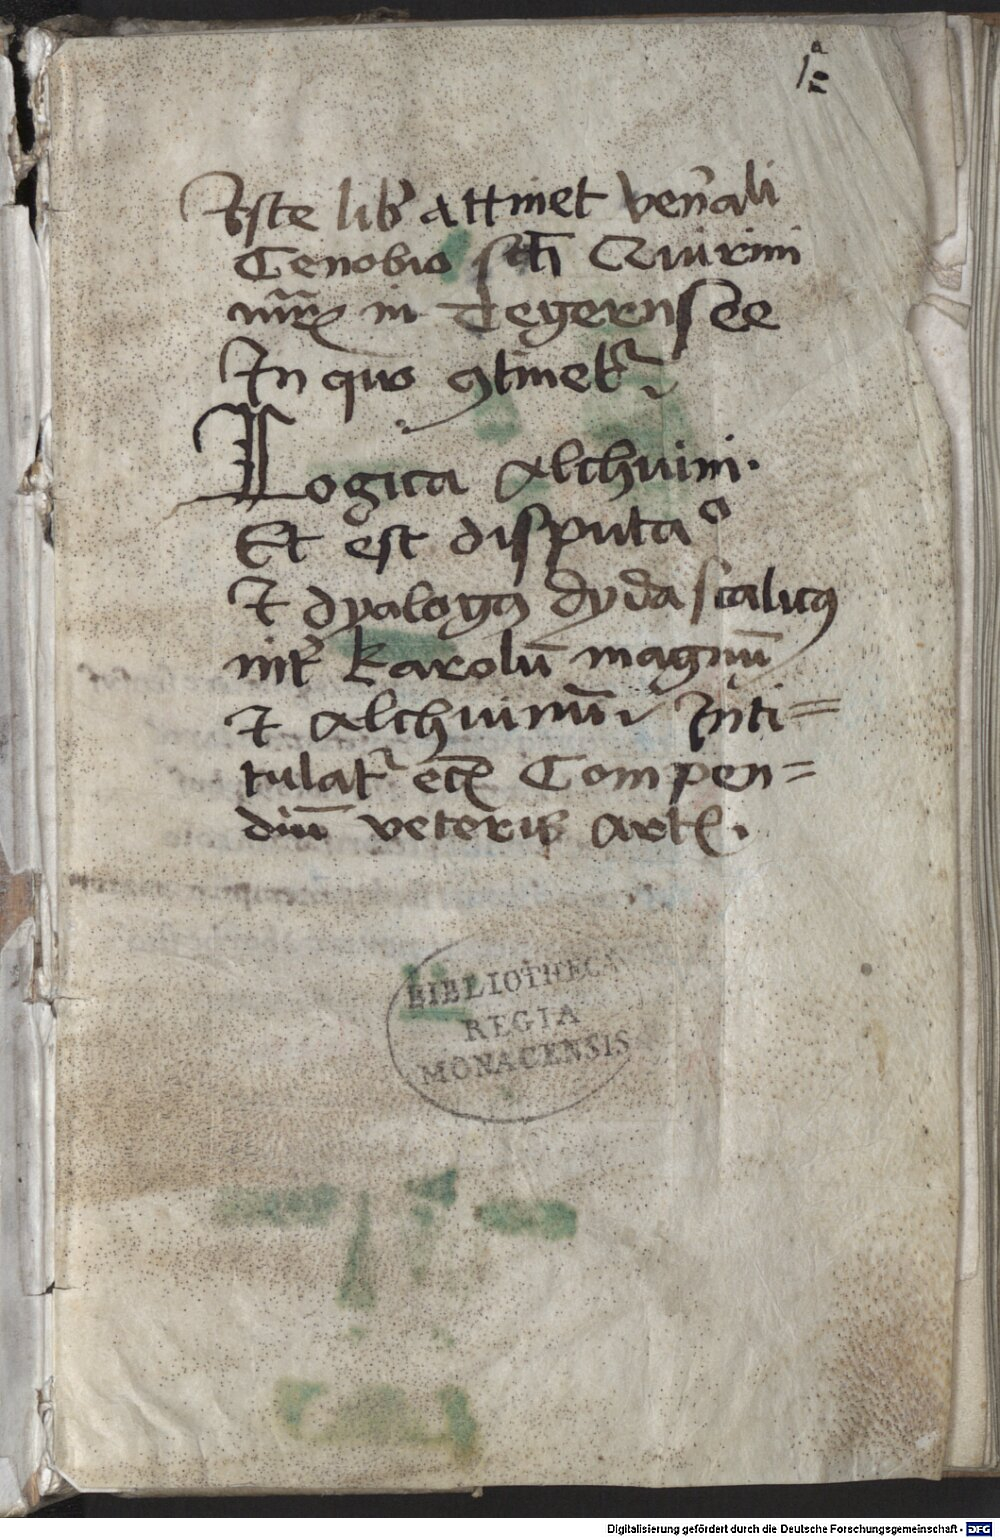 1a
Iste lib' attinet ven'ali
Cenobio scti Quirini
mr̃is in Tegernsee
In quo ꝯtinet'
Logica Alchuini.
Et est disputao
et dyalogꝰ dydascalicꝰ
int' karolū magnū
et Alchuinū Inti=
tulat' ecā Compen=
diū veteris Artis.
BIBLIOTHECA
REGIA
MONACENSIS
Digitalisierung gefördert durch die Deutsche Forschungsgemeinschaft - DFG